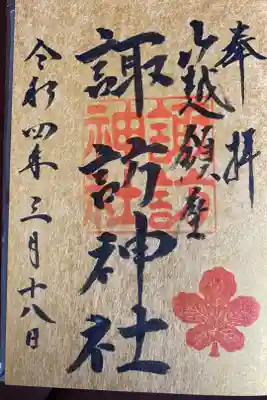 奉拝
越座
諏訪神社
諏訪
神社
令和四年三月十八日